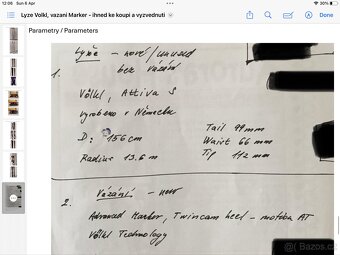 12:06 Sun 6 Apr
30%
Lyze Volkl, vazani Marker - ihned ke koupi a vyzvednuti
Parametry / Parameters
Lyže - nové / unused
bez vázání
1.
Völkl, Attiva S
vyrobeno v Německu
D: 156 cm
Radius 13.6 m
Tail 99 mm
Waist 66 mm
Tip 112 mm
2. Vázání - new
Advanced Marker, Twincam heel - motoba AT
Völkl Technology
Sbazos.cz